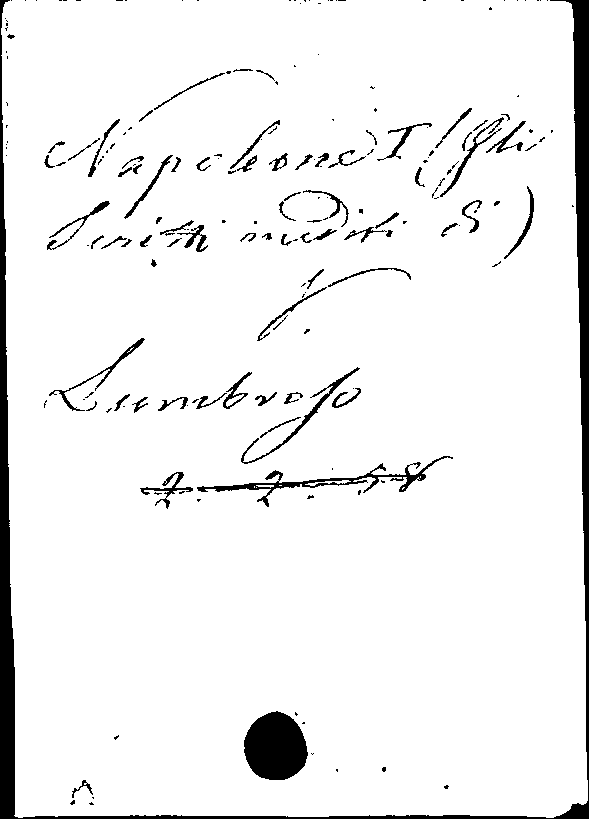 Napoleone I (Gli
Scritti inediti di)
V.
Lumbroso
2. 2. 58